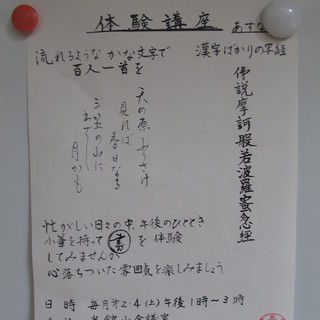 体験講座
あすな
流れるような かな文字で
百人一首を
漢字ばかりの写経
佛説摩訶般若波羅蜜多心経
天の原ふりさけ
見れば
春日なる
三笠の山に
いでし
月かも
忙がしい日々の中、午後のひととき
小筆を持って 書 を 体験
してみませんか
心落ちついた雰囲気を楽しみましょう
日 時 毎月第2・4(土)午後1時〜3時